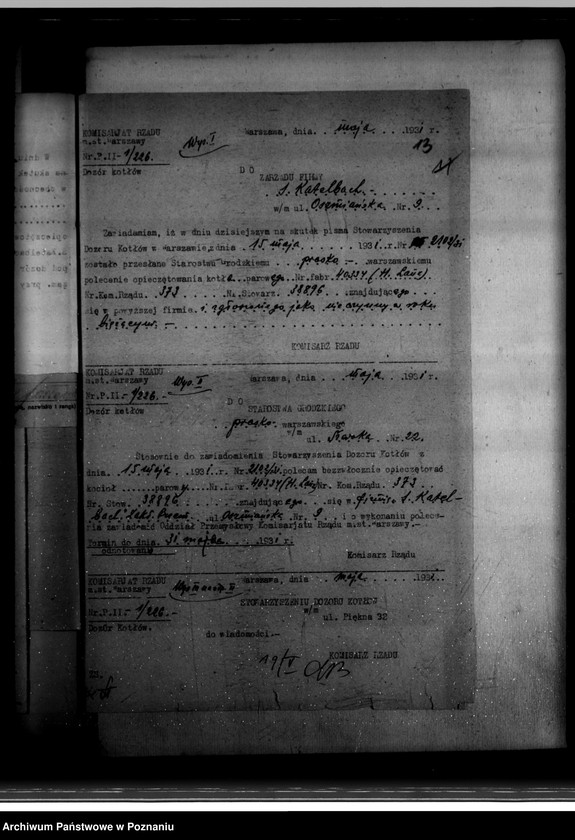 KOMISARJAT RZĄDU
m.st.Warszawy
Nr.P.II- 9/226.
Dozór kotłów
Wyp. I
Warszawa, dnia . . maja . . . . 1931 r.
13
DO
ZARZĄDU FIRMY
S. Katelbach.-
w/m ul. Oszmiańska . Nr 9.
Zawiadamiam, iż w dniu dzisiejszym na skutek pisma Stowarzyszenia
Dozoru Kotłów w Warszawie z dnia . 15 maja . . . 1931 .r. Nr 2102/31
zostało przesłane Starostwu Grodzkiemu . . prasko - . warszawskiemu
polecenie opieczętowania kotła . parowego . Nr. fabr. 40334 (H. Lanz).
Nr. Kom. Rządu . 573 . . . Nr. Stowarz. 39896 . . znajdującego
się w powyższej firmie i zgłoszonego jako nieczynny w roku
bieżącym. -
KOMISARZ RZĄDU
KOMISARJAT RZĄDU
m.st.Warszawy
Nr.P.II- 9/226. -
Dozór kotłów
Wyp. II
Warszawa, dnia . . . maja . . . 1931 r
DO
STAROSTWA GRODZKIEGO
prasko- warszawskiego
w/m
ul. . Nr 22.
Stosownie do zawiadomienia Stowarzyszenia Dozoru Kotłów z
dnia. . 15 maja . .1931 .r. Nr 2102/31 polecam bezzwłocznie opieczętować
kocioł . . . parowy . . Nr. fabr. 40334/H. Lanz Nr. Kom. Rządu . 573 . .
Nr. Stow. . 39896 . . . . znajdującego . . się w firmie S. Katel-
bach, ul. Oszmiańska . Nr. 9 . . i o wykonaniu polece-
nia zawiadomić Oddział Przemysłowy Komisarjatu Rządu m.st.Warszawy.-
Termin do dnia . 31 maja . . . .1931 r.
odnotowano
Komisarz Rządu
KOMISARJAT RZĄDU
m.st.Warszawy
Nr.P.II- 9/226. -
Dozór Kotłów.
Warszawa, dnia . . . maja . . . . .1931. .
STOWARZYSZENIU DOZORU KOTŁÓW
w/m
ul. Piękna 32
do wiadomości.-
KOMISARZ RZĄDU
19/V
Archiwum Państwowe w Poznaniu